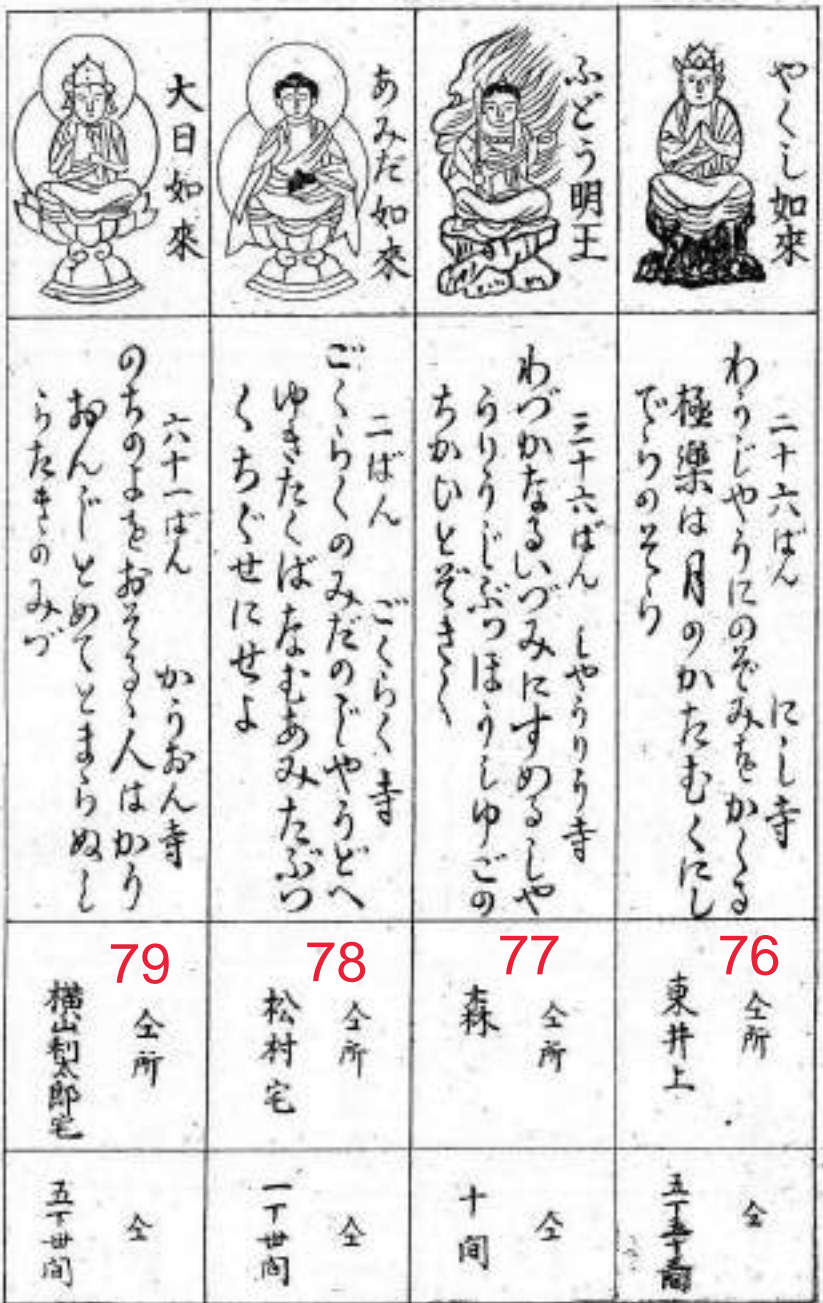 やくし如來
二十六ばん　にし寺
わうじやうにのぞみをかくる
極樂は月のかたむくにし
でらのそら
76
仝所
東井上
仝
ふどう明王
三十六ばん　しやうりう寺
わづかなるいづみにすめるしや
うりうじぶつほうしゆごの
ちかひとぞきく
77
仝所
森
仝
十間
あみだ如來
二ばん　ごくらく寺
ごくらくのみだのじやうどへ
ゆきたくばなむあみだぶつ
くちぐせにせよ
78
仝所
松村宅
仝
一丁丗間
大日如來
六十一ばん　かうおん寺
のちのよをおそるゝ人はかう
おんじとめてとまらぬし
らたきのみづ
79
仝所
横山利太郎宅
仝
五丁丗間